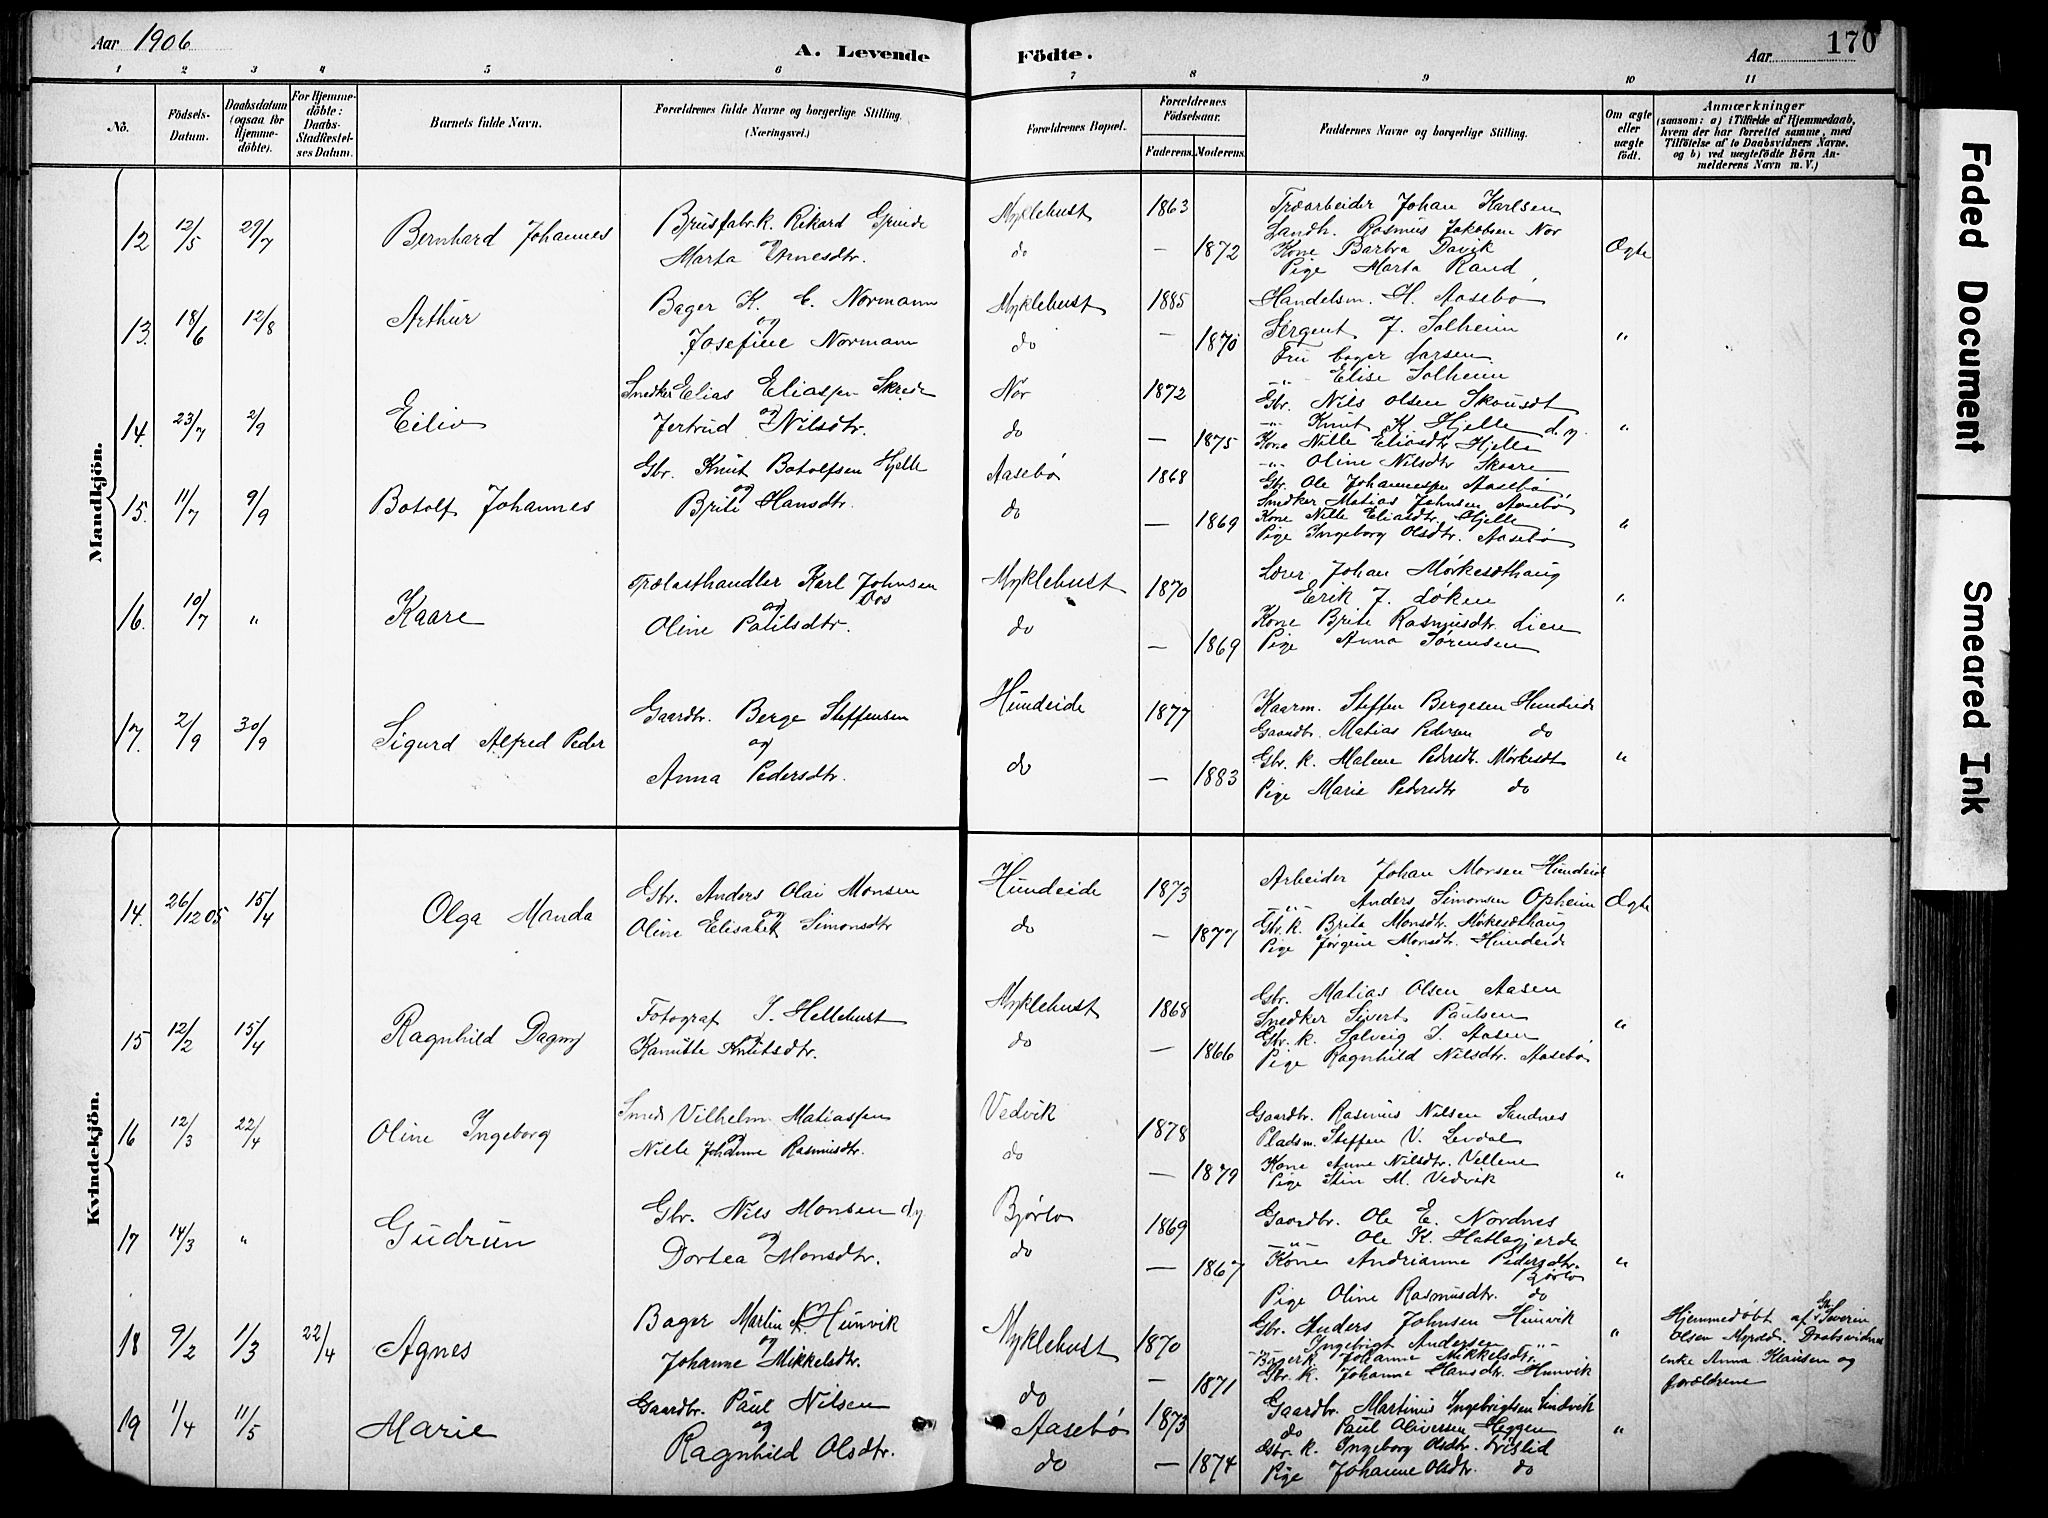 Aar 1906
A. Levende Födte.
Aar
170
1 2 3 4 5 6 7 8 9 10 11
Nö.
Födsels-Datum.
Daabsdatum (ogsaa för Hjemme-döbte).
For Hjemme-döbte: Daabs-Stadfæstel-ses Datum.
Barnets fulde Navn.
Forældrenes fulde Navne og borgerlige Stilling. (Næringsvei.)
Forældrenes Bopæl.
Forældrenes Födselsaar.
Faderens. Moderens.
Faddernes Navne og borgerlige Stilling.
Om ægte eller uægte födt.
Anmærkninger
(saasom: a) i Tilfælde af Hjemmedaab, hvem der har forrettet samme, med Tilföielse af to Daabsvidners Navne, og b) ved uægtefödte Börn An-melderens Navn m. V.)
Mandkjön.
12 12/5 29/7 Bernhard Johannes
Brusfabr.k. Rikard Grinde
og
Marta Arnesdtr.
Myklebust 1863
do — 1872
Træarbeider Johan Karlsen
Landh. Rasmus Jakobsen Nor
Kone Barbra Davik
Pige Marta Rand
Ægte
13. 18/6 12/8 Arthur
Bager K. E. Normann
og
Josefine Normann
Myklebust 1885
do 1870
Handelsm. H. Aasebø
Sergent J. Solheim
Fru bager Larsen
-"- Elise Solheim
"
14. 23/7 2/9 Eiliv
Snedker Elias Eliassen Skrede
og
Jertrud Nilsdtr.
Nor 1872
do — 1875
Gbr. Nils Olsen
-"- Knut K. Hjelle d.y.
Kone Nille Eliasdtr Hjelle
-"- Oline Nilsdtr Skaare
"
15. 11/7 9/9 Botolf Johannes
Gbr. Knut Botolfsen Hjelle
og
Brite Hansdtr.
Aasebø 1868
do — 1869
Gbr. Ole Johannessen Aasebø
Snedker Matias Johnsen Aasebø
Kone Nille Eliasdtr. Hjelle
Pige Ingeborg Olsdtr. Aasebø
"
16. 10/7 " Kaare
Trælasthandler Karl Johnsen
Os
og
Oline Paulsdtr.
Myklebust 1870
do — 1869
Lærer Johan Mørkesæthaug
Erik J. Løken
Kone Brite Rasmusdtr. Lien
Pige Anna Sørensen
"
17. 2/9 30/9 Sigurd Alfred Peder
Gaardbr. Berge Steffensen
og
Anna Pedersdtr.
Hundeide 1877
do — 1883
Kaarm. Steffen Bergesen Hundeide
Gaardbr. Matias Pedersen do
Gbr. k. Malene Pedersdtr. Mørkesdt
Pige Marie Pedersdtr do
"
Kvindekjön.
14. 26/12 05 15/4 Olga Manda
Gbr. Anders Olai Monsen
og
Oline Elisabet Simonsdtr
Hundeide 1873
do — 1877
Arbeider Johan Monsen Hundeide
-"- Anders Simonsen Opheim
Gbr. k. Brita Monsdtr. Mørkesæthaug
Pige Jørgine Monsdtr. Hundeide
Ægte
15 12/2 15/4 Ragnhild Dagny
Fotograf J. Hellebust
og
Kanutte Knutsdtr.
Myklebust 1868
do — 1866
Gbr. Matias Olsen Aasen
Snedker Sivert Paulsen
Gbr. k. Solveig J. Aasen
Pige Ragnhild Nilsdtr. Aasebø
"
16 12/3 22/4 Oline Ingeborg
Smed Vilhelm Matiassen
og
Nille Johanne Rasmusdtr.
Vedvik 1878
do — 1879
Gaardbr. Rasmus Nilsen Sandnes
Pladsm. Steffen V. Levdal
Kone Anne Nilsdtr. Vellene
Pige Stin M. Vedvik
"
17 14/3 " Gudrun
Gbr. Nils Monsen d.y.
og
Dortea Monsdtr.
Bjørlo 1869
do — 1867
Gaardbr. Ole E. Nordnes
-"- Ole K. Hatlegjerde
Kone Andrianne Pedersdtr.
Bjørlo
Pige Oline Rasmusdtr. do
"
18 9/2 1/3 22/4 Agnes
Bager Martin A. Hunvik
og
Johanne Mikkelsdtr.
Myklebust 1870
do — 1871
Gbr. Anders Johnsen Hunvik
-"- Ingebrigt Andersen -"-
Bagerk. Johanne Mikkelsdtr.
Gbr. k. Johanne Hansdtr. Hunvik
"
Hjemmedøbt af Severin
Olsen Myrsed. Daabsvidner
enke Anna Klausen og
forældrene
19 1/4 11/5 Marie
Gaardbr. Paul Nilsen
og
Ragnhild Olsdtr.
Aasebø 1873
do — 1874
Gaardbr. Martinus Ingebrigtsen Lindvik
do Paul Oliversen Heggen
Gbr. k. Ingeborg Olsdtr. Frislid
Pige Johanne Olsdtr. do
"
Faded Document
Smeared Ink